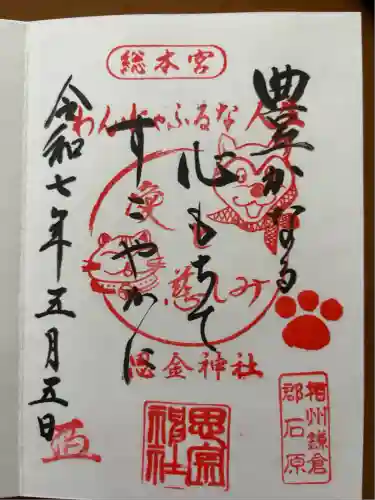 総本宮
わんにゃふるな人
豊かなる
心もちて
すこやかに
愛
慈しみ
思金神社
令和七年五月五日
相州鎌倉
郡石原
思金
神社